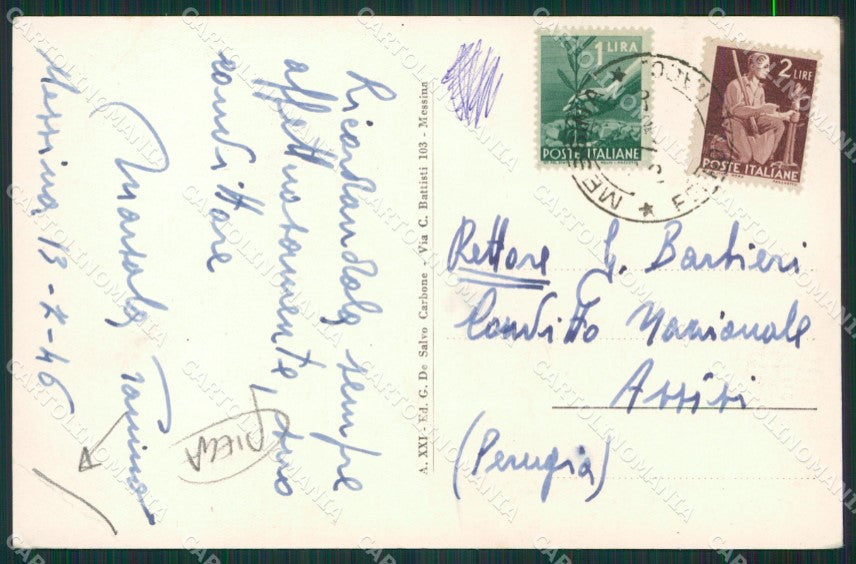 Ricordandola sempre
affettuosamente, suo
convittore
Messina 13-7-46
PIEGA
A. XXI - Ed. G. De Salvo Carbone - Via C. Battisti 103 - Messina
1 LIRA
POSTE ITALIANE
2 LIRE
POSTE ITALIANE
Rettore G. Barbieri
Convitto Nazionale
Assisi
(Perugia)
CARTOLINOMANIA